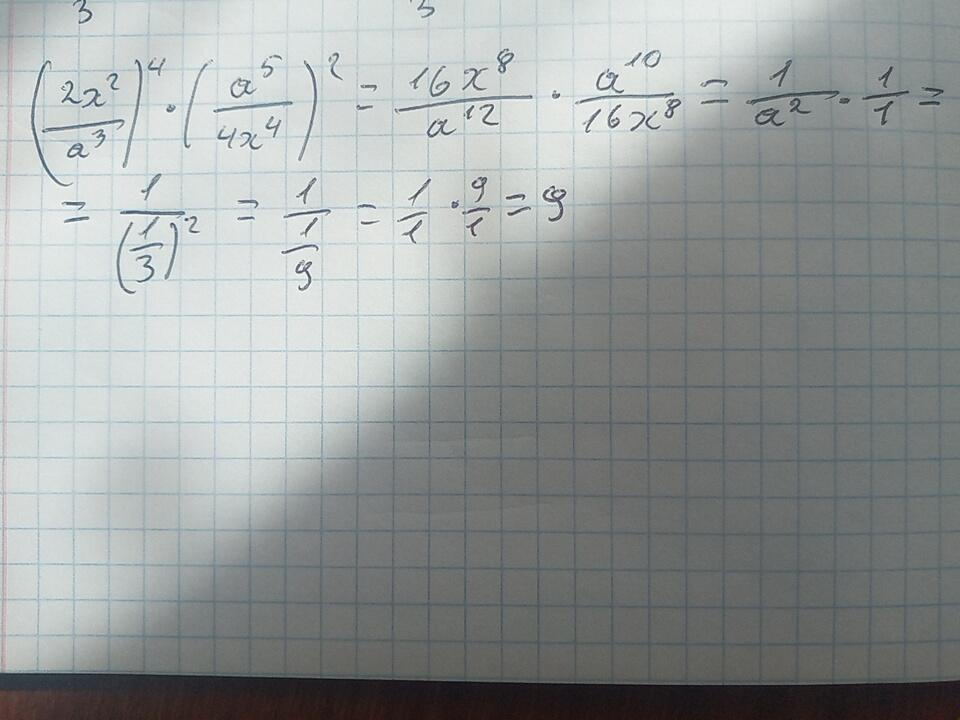 3 3
(2x²/a³)⁴ · (a⁵/4x⁴)² = 16x⁸/a¹² · a¹⁰/16x⁸ = 1/a² · 1/1 =
= 1/(1/3)² = 1/(1/9) = 1/1 · 9/1 = 9